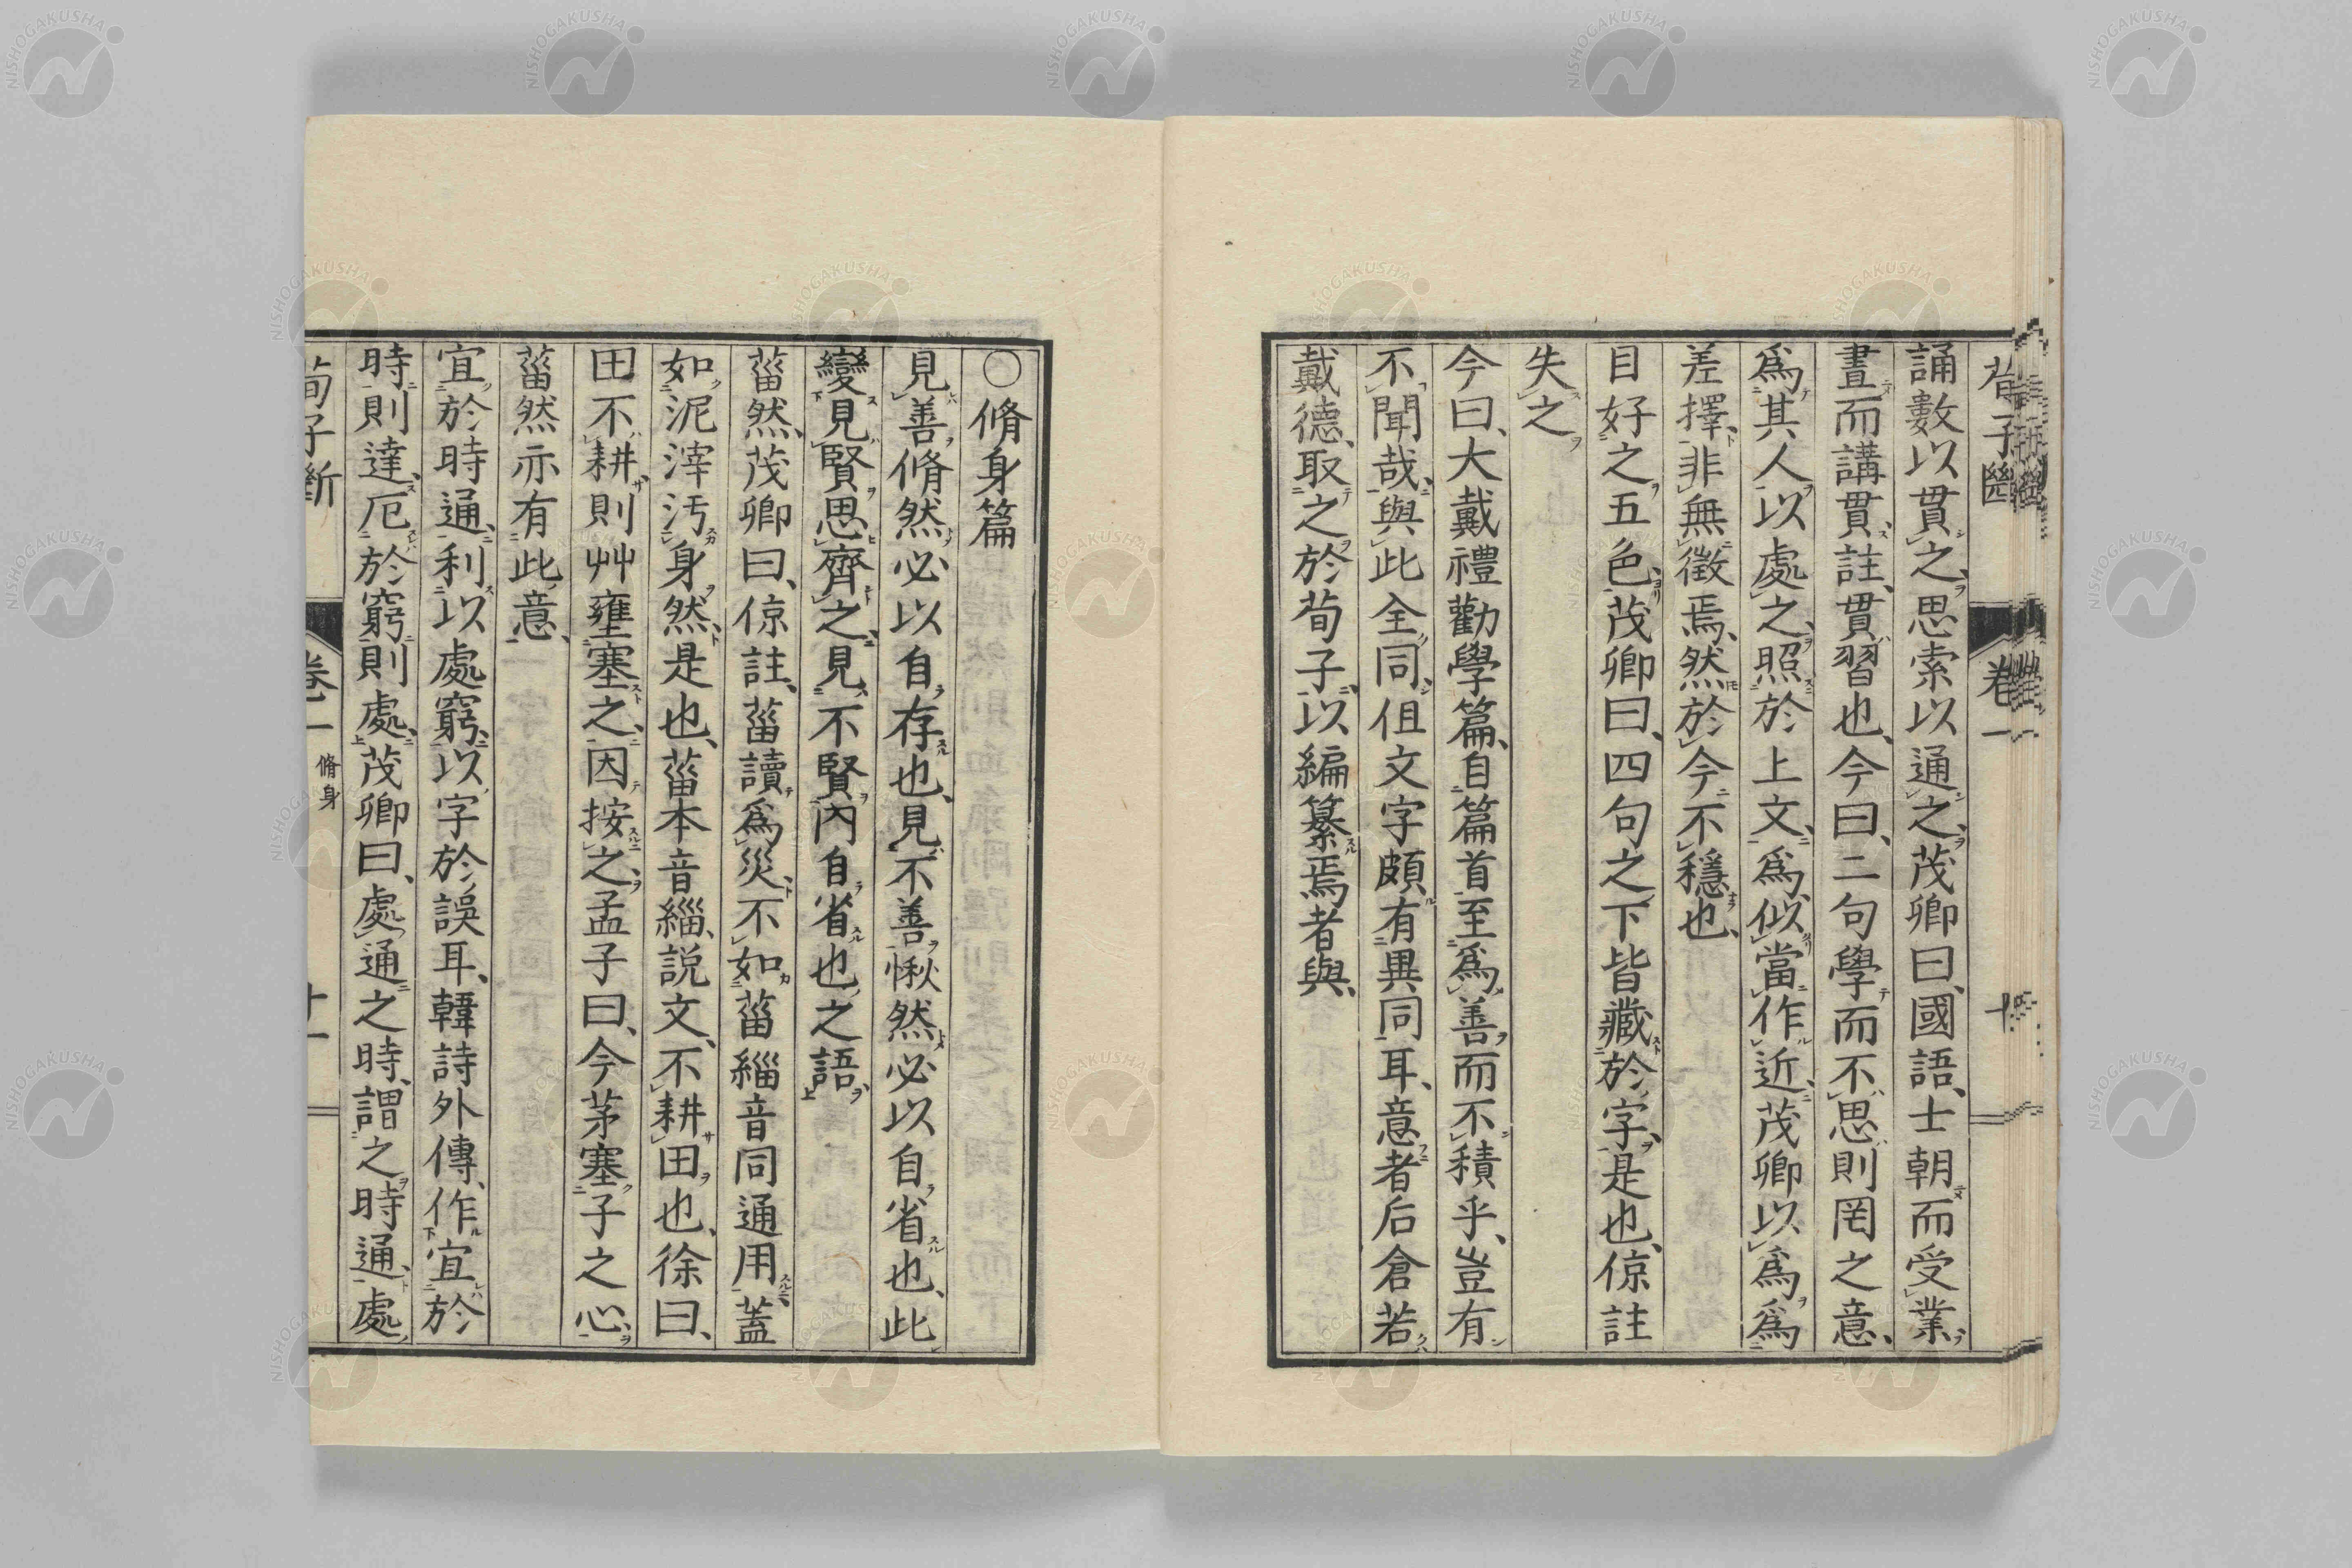 荀子斷 卷一 十
誦數以貫之、思索以通之、茂卿曰、國語、士朝而受業、
晝而講貫、註、貫習也、今曰、二句學而不思則罔之意、
爲其人以處之、照於上文、爲、似當作近、茂卿以爲爲
差擇、非無徵焉、然於今不穩也、
目好之五色、茂卿曰、四句之下皆藏於字、是也、倞註
失之
今曰、大戴禮勸學篇、自篇首至爲善而不積乎、豈有
不聞哉、與此全同、但文字頗有異同耳、意者后倉若
戴德、取之於荀子、以編纂焉者與、
○脩身篇
見善脩然必以自存也、見不善愀然必以自省也、此
變見賢思齊之、見不賢內自省也之語、
菑然、茂卿曰、倞註、菑讀爲災、不如菑緇音同通用、蓋
如泥滓汚身然、是也、菑本音緇、説文、不耕田也、徐曰、
田不耕則艸壅塞之、因按之、孟子曰、今茅塞子之心、
菑然亦有此意、
宜於時通、利以處窮、以字於誤耳、韓詩外傳、作宜於
時則達、厄於窮則處、茂卿曰、處通之時、謂之時通、處
荀子斷 卷一 脩身 十一
NISHOGAKUSHA